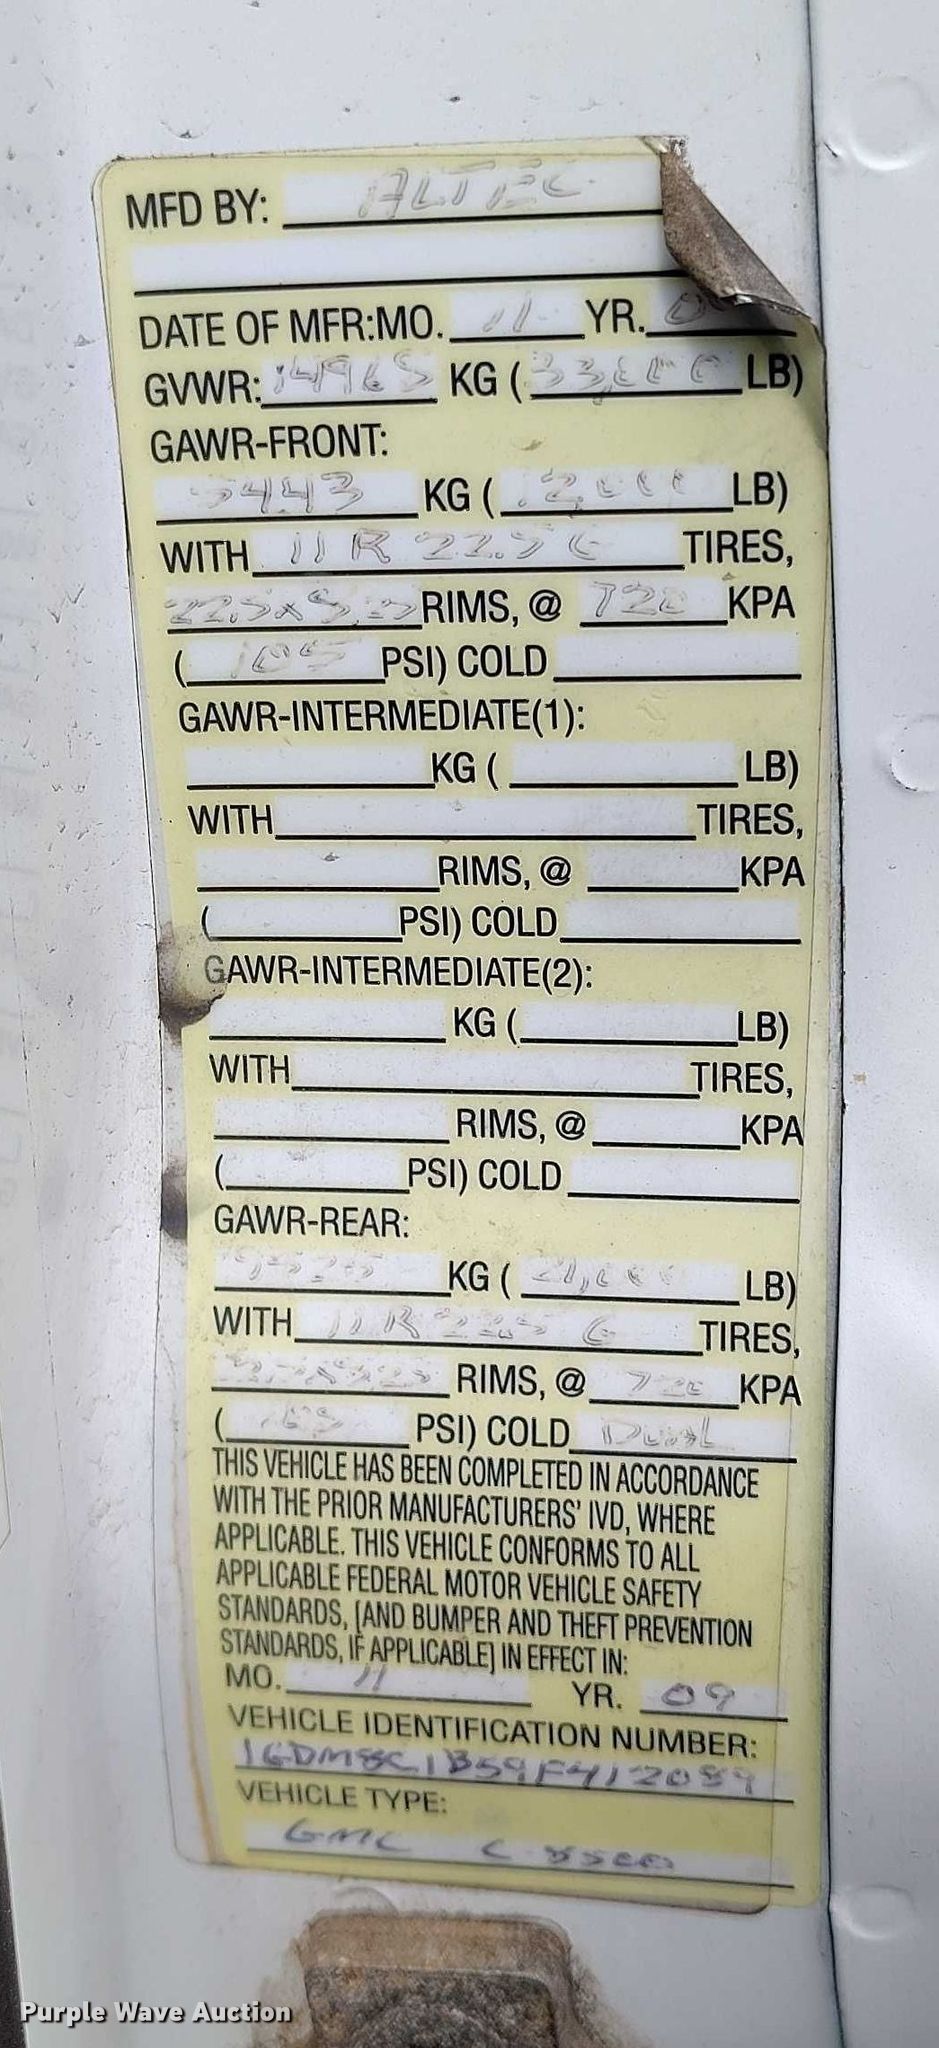 MFD BY: ALTEC
DATE OF MFR:MO. 11 YR. 0
GVWR: 14965 KG ( 33,000 LB)
GAWR-FRONT:
5443 KG ( 12,000 LB)
WITH 11 R 22.5 G TIRES,
22.5 x 8.25 RIMS, @ 720 KPA
( 105 PSI) COLD
GAWR-INTERMEDIATE(1):
KG ( LB)
WITH TIRES,
RIMS, @ KPA
( PSI) COLD
GAWR-INTERMEDIATE(2):
KG ( LB)
WITH TIRES,
RIMS, @ KPA
( PSI) COLD
GAWR-REAR:
KG ( 21,000 LB)
WITH 11 R 22.5 G TIRES,
RIMS, @ 720 KPA
( PSI) COLD Dual
THIS VEHICLE HAS BEEN COMPLETED IN ACCORDANCE
WITH THE PRIOR MANUFACTURERS' IVD, WHERE
APPLICABLE. THIS VEHICLE CONFORMS TO ALL
APPLICABLE FEDERAL MOTOR VEHICLE SAFETY
STANDARDS, [AND BUMPER AND THEFT PREVENTION
STANDARDS, IF APPLICABLE] IN EFFECT IN:
MO. 11 YR. 09
VEHICLE IDENTIFICATION NUMBER:
1GDM8C1B59F412089
VEHICLE TYPE:
GMC C 8500
Purple Wave Auction